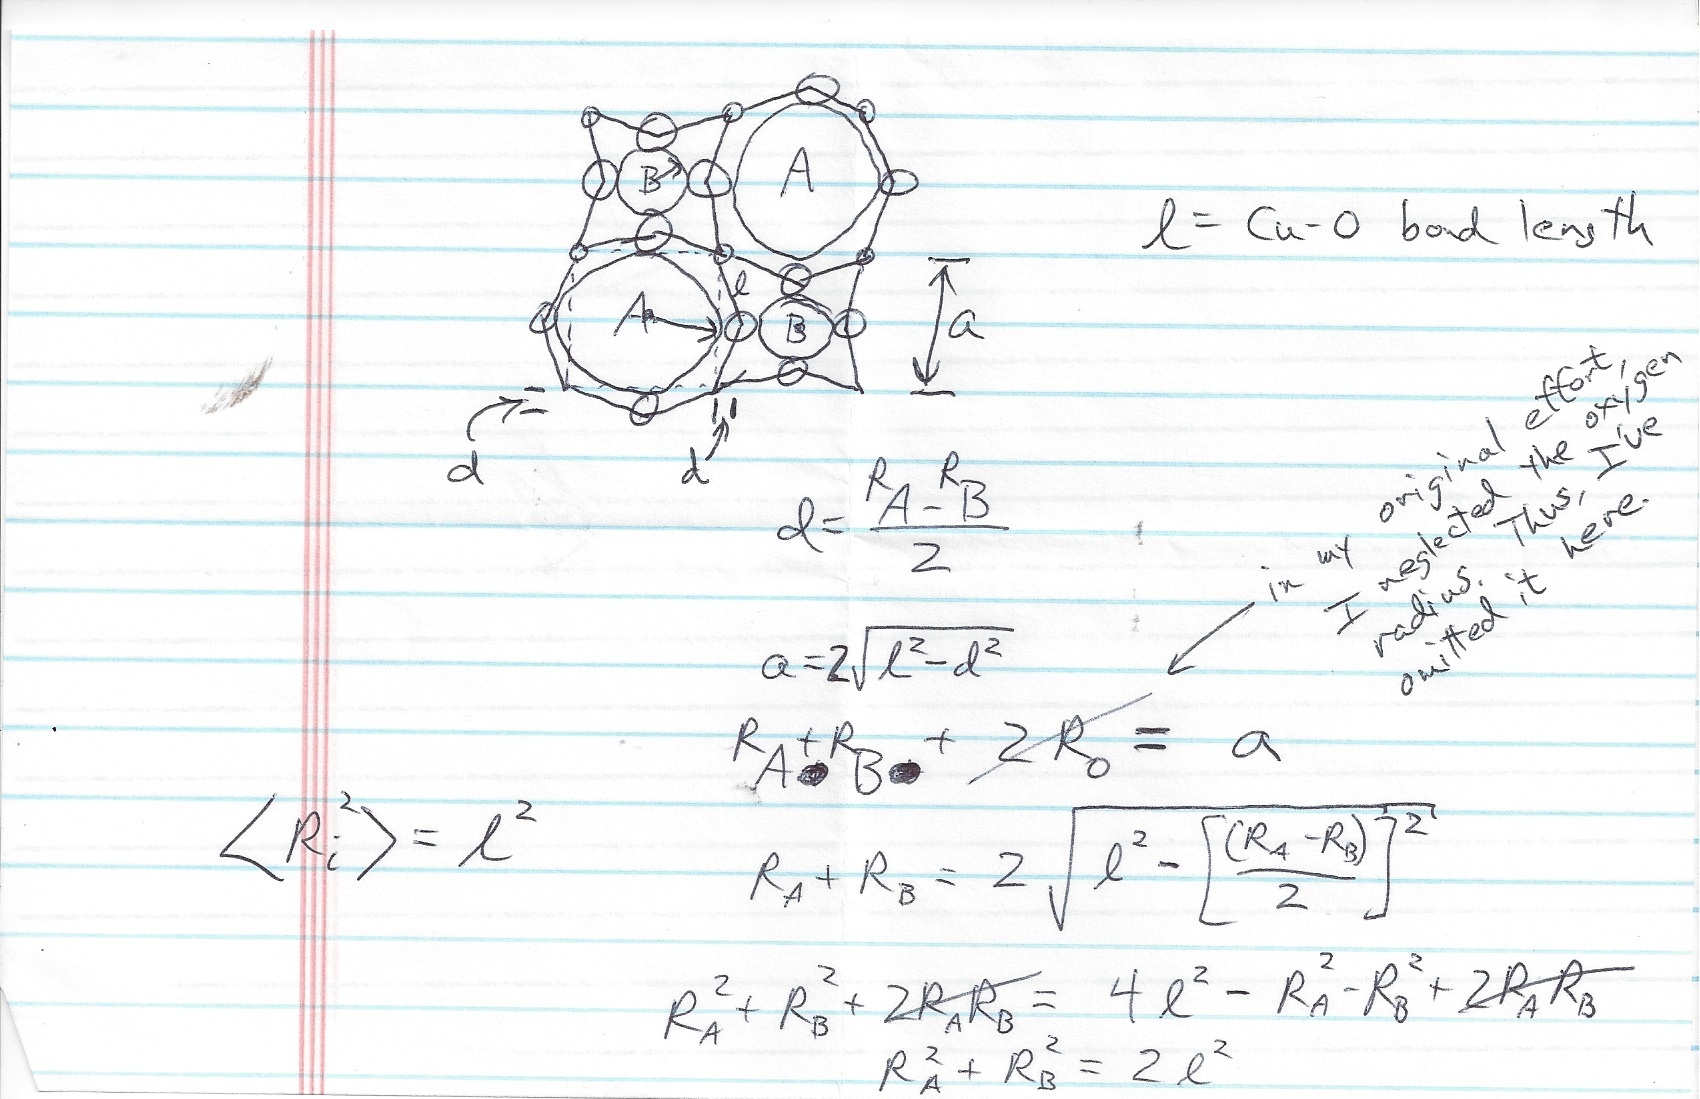 B A
l = Cu-O bond length
l
A B
a
d d
d = (R_A - R_B)/2
in my original effort,
I neglected the oxygen
radius. Thus, I've
omitted it here.
a = 2√(l² - d²)
R_A + R_B + 2R_O = a
<R_i²> = l²
R_A + R_B = 2√(l² - [(R_A - R_B)/2]²)
R_A² + R_B² + 2R_A R_B = 4l² - R_A² - R_B² + 2R_A R_B
R_A² + R_B² = 2l²